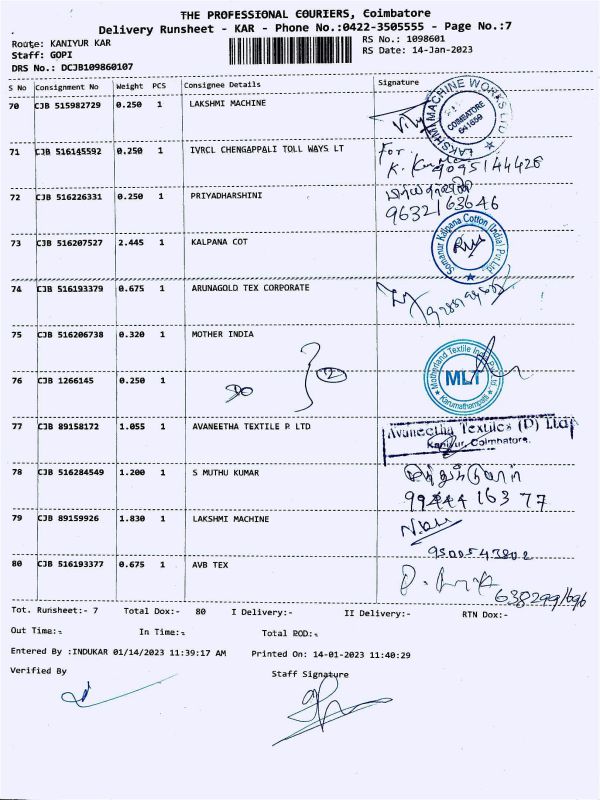 THE PROFESSIONAL COURIERS, Coimbatore
Delivery Runsheet - KAR - Phone No.:0422-3505555 - Page No.:7
Route: KANIYUR KAR RS No.: 1098601
Staff: GOPI RS Date: 14-Jan-2023
DRS No.: DCJB109860107
S No Consignment No Weight PCS Consignee Details Signature
70 CJB 515982729 0.250 1 LAKSHMI MACHINE
LAKSHMI MACHINE WORKS LTD
COIMBATORE
641659
71 CJB 516145592 0.250 1 IVRCL CHENGAPPALI TOLL WAYS LT For
K. 9095144428
72 CJB 516226331 0.250 1 PRIYADHARSHINI
9632163646
73 CJB 516207527 2.445 1 KALPANA COT
Somanur Kalpana Cotton (India) Pvt. Ltd.
74 CJB 516193379 0.675 1 ARUNAGOLD TEX CORPORATE
75 CJB 516206738 0.320 1 MOTHER INDIA
2
Motherland Textile India Pvt Ltd
MLT
Karumathampatti
76 CJB 1266145 0.250 1
77 CJB 89158172 1.055 1 AVANEETHA TEXTILE P. LTD Avaneetha Textiles (P) Ltd
Kaniyur, Coimbatore.
78 CJB 516284549 1.200 1 S MUTHU KUMAR
99444 163 77
79 CJB 89159926 1.830 1 LAKSHMI MACHINE
9500543802
80 CJB 516193377 0.675 1 AVB TEX
Tot. Runsheet:- 7 Total Dox:- 80 I Delivery:- II Delivery:- RTN Dox:-
Out Time:- In Time:- Total POD:-
Entered By :INDUKAR 01/14/2023 11:39:17 AM Printed On: 14-01-2023 11:40:29
Verified By Staff Signature